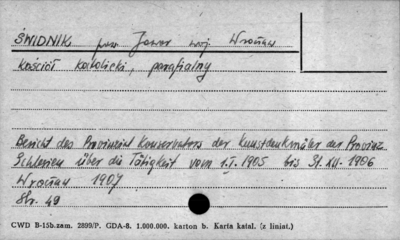 ŚWIDNIK pow. Jawor woj. Wrocław
Kościół katolicki, parafialny
Bericht des Provinzial Konservators der Kunstdenkmäler der Provinz
Schlesien über die Tätigkeit vom 1.I.1905 bis 31.XII.1906
Wrocław 1907
Str. 49
CWD B-15b.zam. 2899/P. GDA-8. 1.000.000. karton b. Karta katal. (z liniat.)